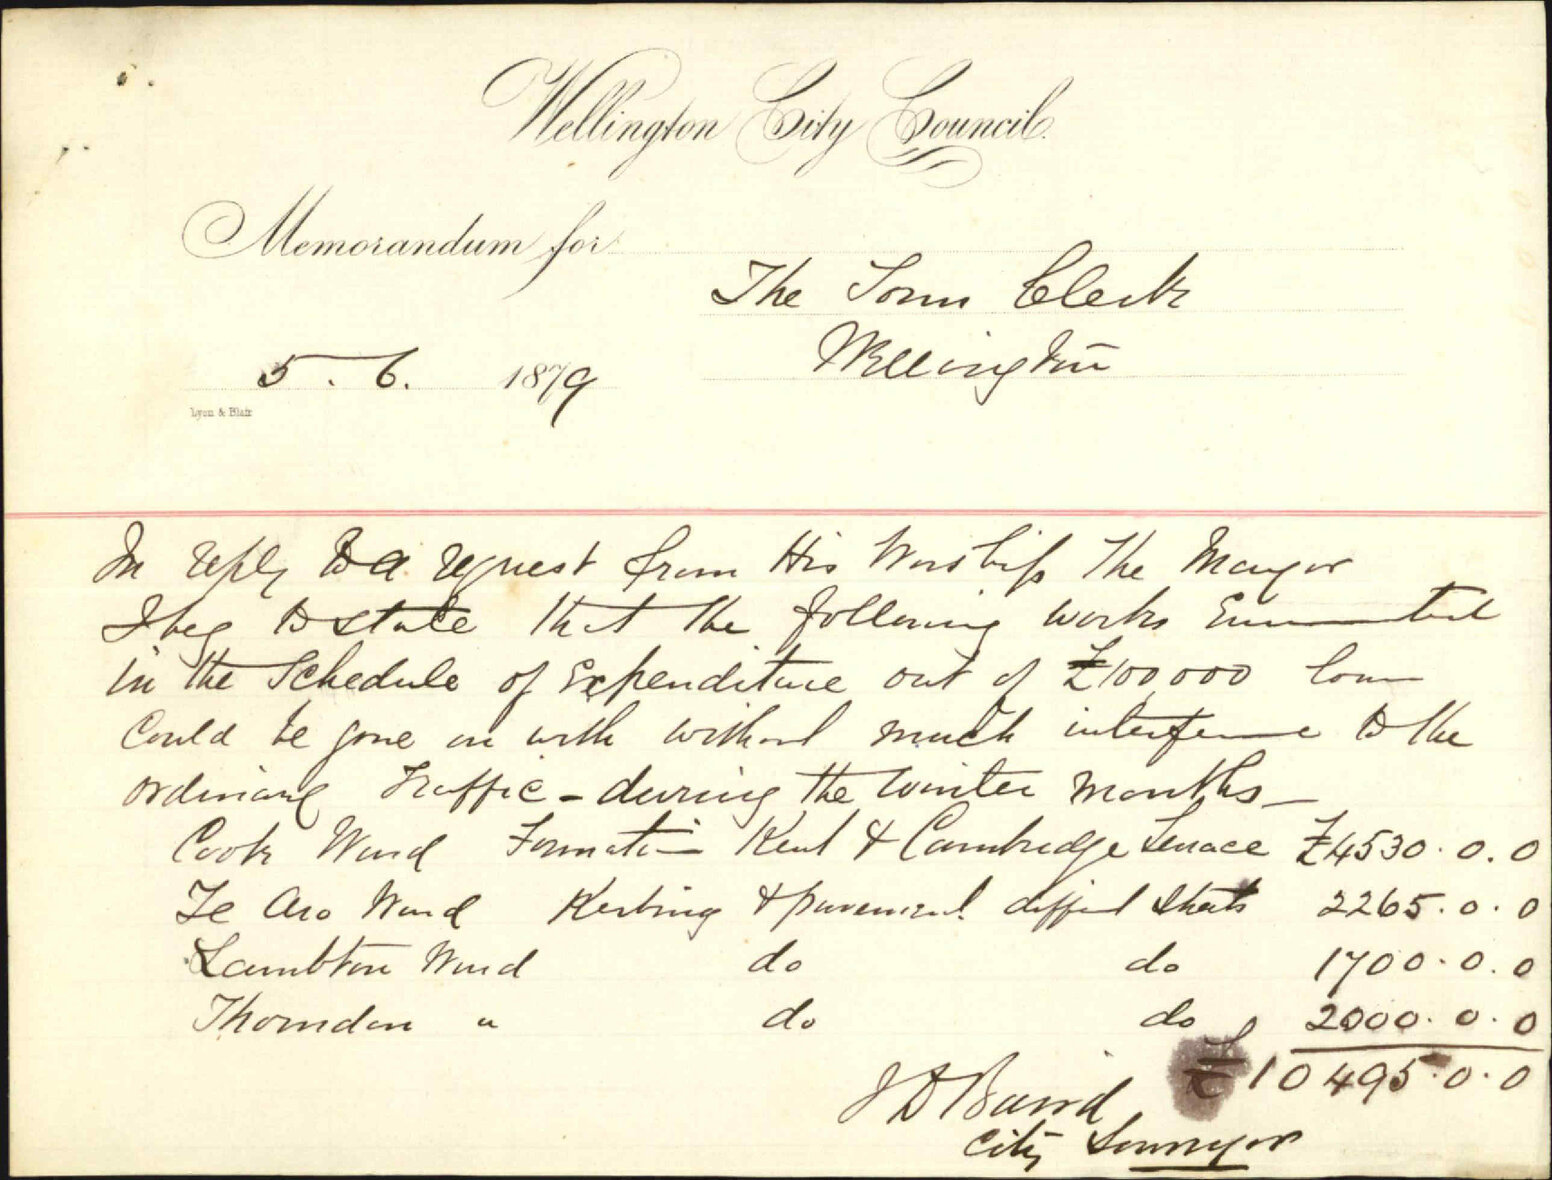 Wellington City Council.
Memorandum for
The Town Clerk
Wellington
5. 6. 1879
Lyon & Blair
In reply to a request from His Worship the Mayor
I beg to state that the following works Enumerated
in the Schedule of Expenditure out of £100,000 loan
Could be gone on with without much interference to the
ordinary Traffic - during the winter months -
Cook Ward Formation Kent & Cambridge Terrace £4530.0.0
Te Aro Ward Kerbing & pavement diffnt Streets 2265.0.0
Lambton Ward do do 1700.0.0
Thorndon " do do 2000.0.0
£10495.0.0
J D Baird
City Surveyor